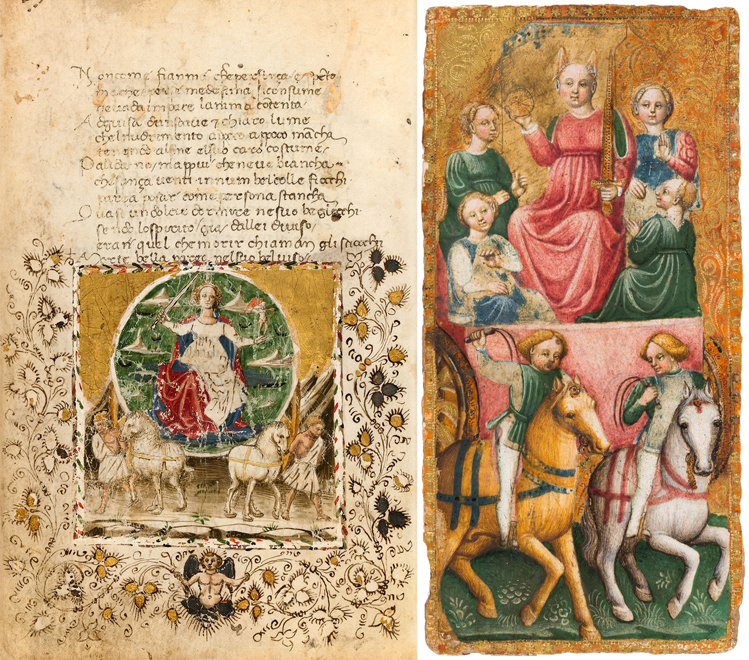 Non come fiamma che per força e spēto
ma che per se medesima si consume
ne vada in pace larima cōtenta
A guisa dunsoave & chiaro lume
chel nudrimento a poco a poco mācha
tenendo al fine el suo caro costume
Palida no, ma piu che neve biancha
che sança venti in un bel colle fiocchi
parea posar come persona stancha
Quasi un dolce dormire ne suo begliocchi
sendo lo spirto gia dallei diviso
eran quel che morir chiaman gli sciocchi
Morte bella parea nel suo bel viso